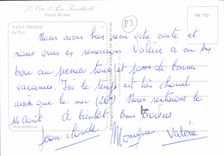 La Côte d'Azur Inoubliable
French Riviera
SAINT-TROPEZ
Le Port
83
Nous avons bien reçu votre carte et
nous vous en remercions Valérie a eu son
bac au premier tour et passe de bonnes
vacances. Ici le temps est très chaud
ainsi que la mer (26°). Nous rentrons le
16 Août à bientôt. Bons Baisers
Jean Claude Monique Valérie